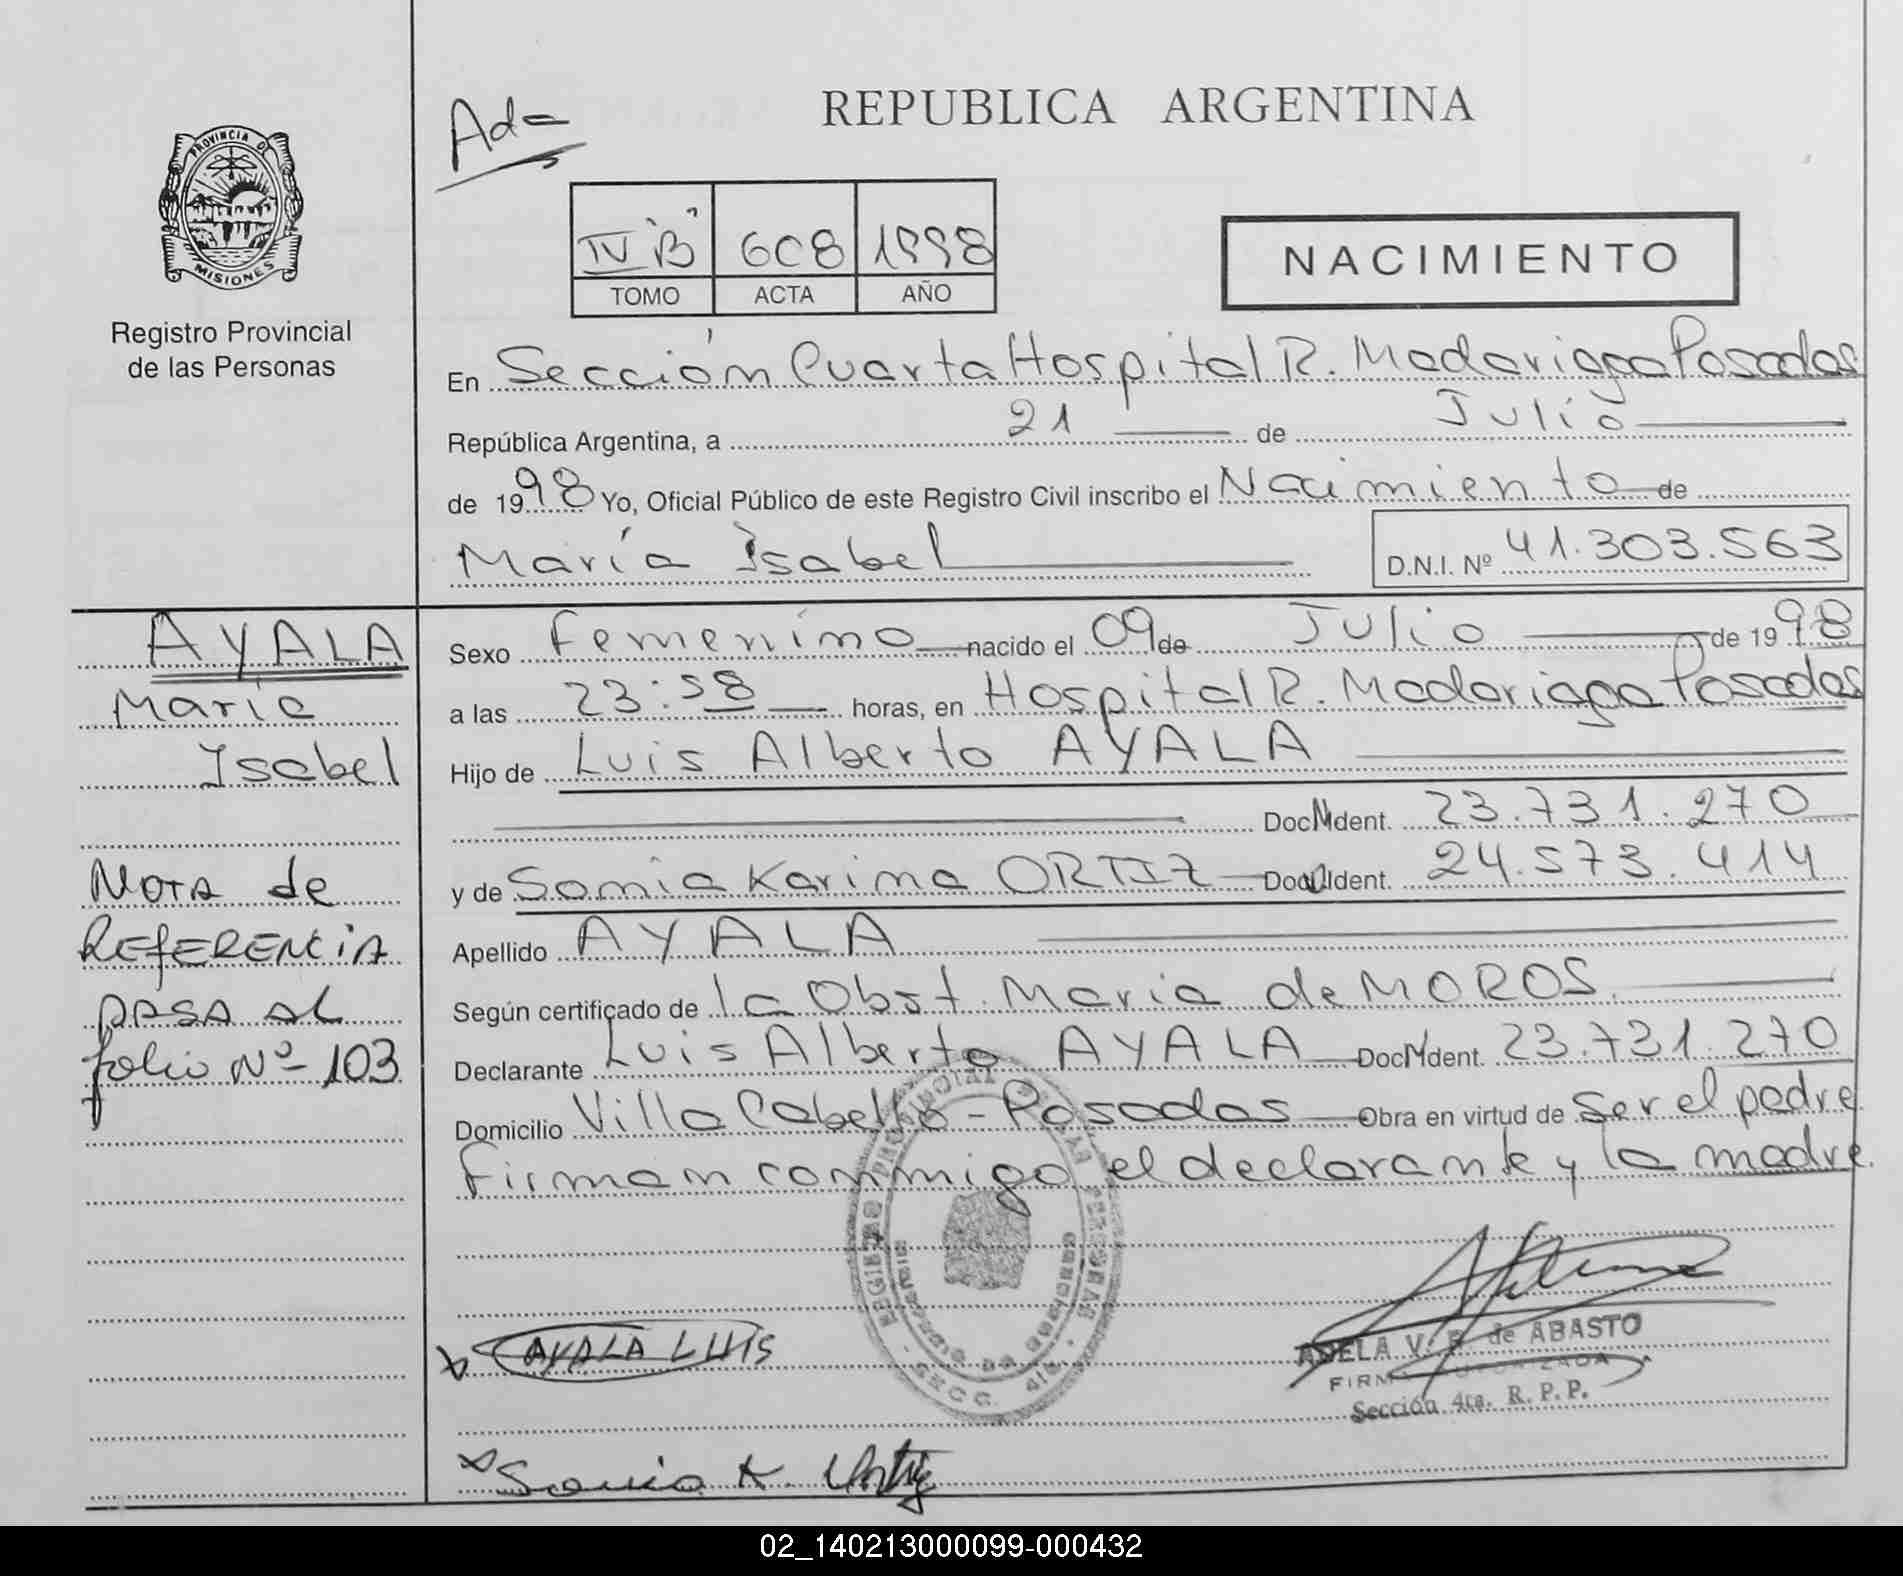 REPUBLICA ARGENTINA
Ada
PROVINCIA DE
MISIONES
Registro Provincial
de las Personas
IV "B" 608 1998
TOMO ACTA AÑO
NACIMIENTO
En Sección Cuarta Hospital R. Madariaga Posadas
República Argentina, a 21 de Julio
de 1998 Yo, Oficial Público de este Registro Civil inscribo el Nacimiento de
María Isabel D.N.I. Nº 41.303.563
AYALA
María
Isabel
Nota de
REFERENCIA
PASA AL
folio Nº 103
Sexo Femenino nacido el 09 de Julio de 1998
a las 23:58 horas, en Hospital R. Madariaga Posadas
Hijo de Luis Alberto AYALA
Doc. Ident. 23.731.270
y de Sonia Karina ORTIZ Doc. Ident. 24.573.414
Apellido AYALA
Según certificado de la Obst. Maria de MOROS
Declarante Luis Alberto AYALA Doc. Ident. 23.731.270
Domicilio Villa Cabello - Posadas Obra en virtud de ser el padre
firman conmigo el declarante y la madre.
REGISTRO PROVINCIAL DE LAS PERSONAS
AYALA LUIS
ADELA V. de ABASTO
FIRMA AUTORIZADA
Sección 4ta. R. P. P.
Sonia K. Ortiz
02_140213000099-000432